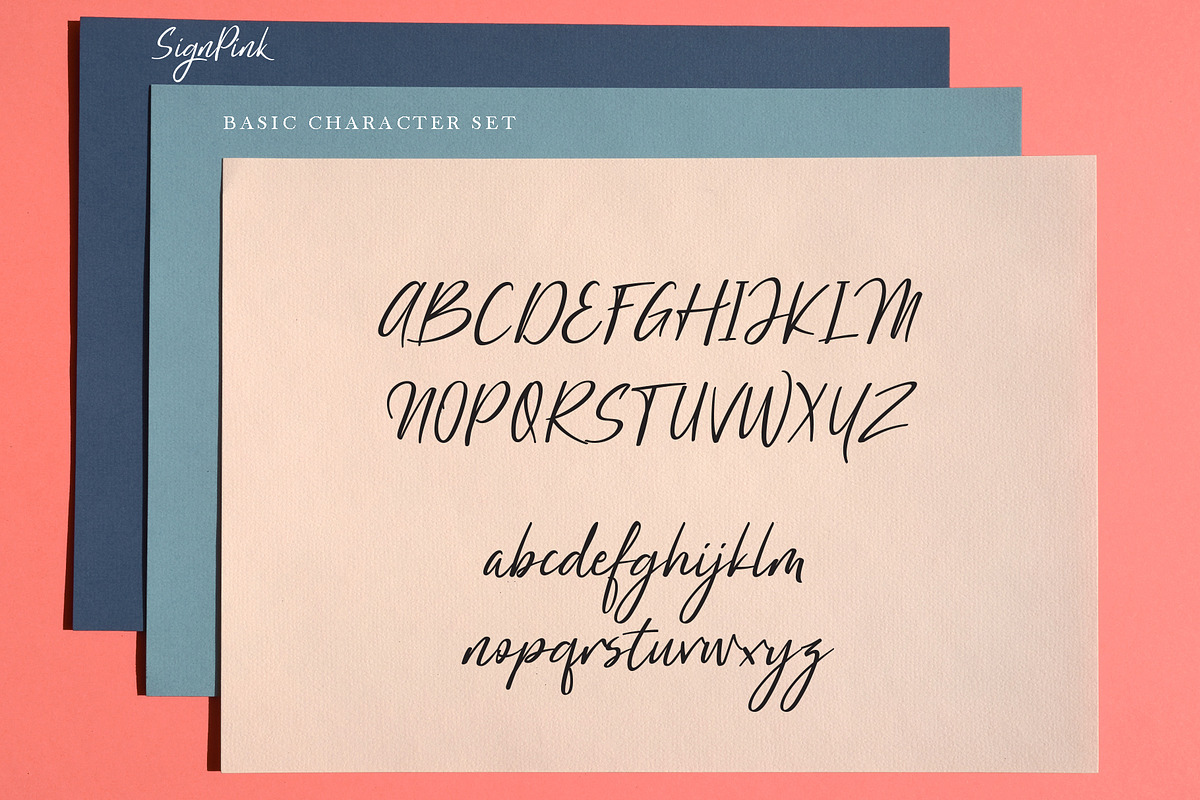 SignPink
BASIC CHARACTER SET
ABCDEFGHIJKLM
NOPQRSTUVWXYZ
abcdefghijklm
nopqrstuvwxyz